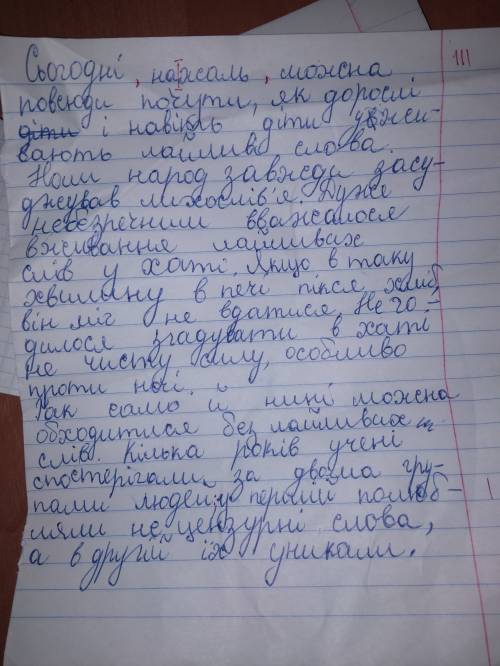 Сьогодні, на жаль, можна
повсюди почути, як дорослі
діти і навіть діти ужи-
вають лайливі слова.
Наш народ завжди засу-
джував лихослів'я. Дуже
небезречним вважалося
вживання лайливих
слів у хаті. Якщо в таку
хвилину в печі пікся хліб,
він міг не вдатися. Не го-
дилося згадувати в хаті
не чисту силу, особливо
проти ночі.
Так само й нині можна
обходитися без лайливих
слів. Кілька років учені
спостерігали за двома гру-
пами людей: у першій полюб-
ляли нецензурні слова,
а в другій їх уникали.